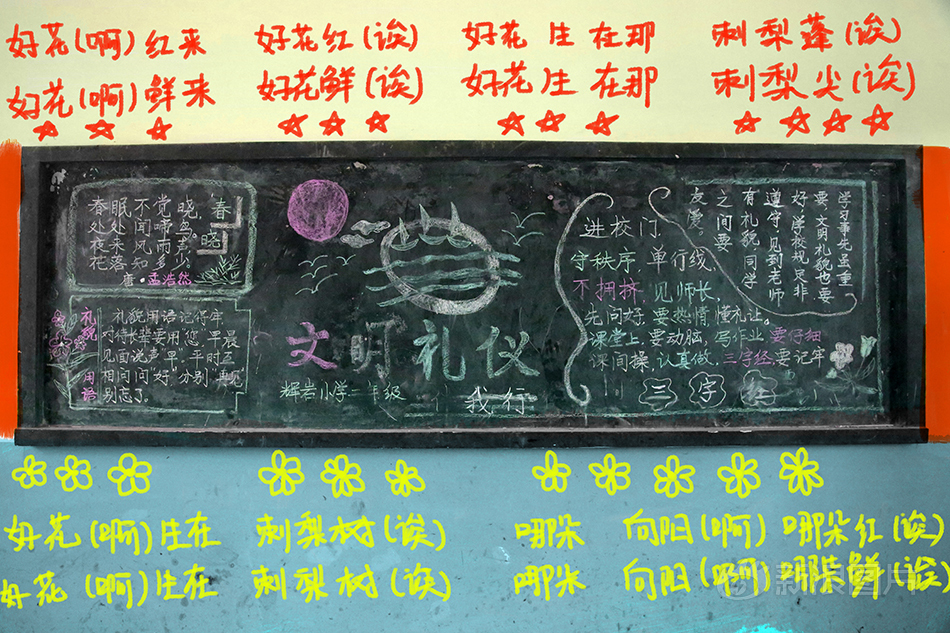 好花(啊)红来 好花红(诶) 好花生在那 刺梨蓬(诶)
好花(啊)鲜来 好花鲜(诶) 好花生在那 刺梨尖(诶)
春眠不觉晓,
处处闻啼鸟。
夜来风雨声,
花落知多少
唐·孟浩然
春
晓
礼貌用语
礼貌用语记得牢
对待长辈要用"您"早晨
见面说声"早",平时互
相问问"好",分别"再见"
别忘了。
文明礼仪
我行
辉岩小学二年级
进校门,
守秩序,单行线,
不拥挤,见师长,
先问好,要热情,懂礼让。
课堂上,要动脑,写作业要仔细
课间操,认真做,三字经要记牢
三字经
学习事先孟重
要文明礼貌也要
好学校规定非
遵守见到老师
有礼貌同学
之间要
友爱。
好花(啊)生在 刺梨树(诶) 哪朵 向阳(啊) 哪朵红(诶)
好花(啊)生在 刺梨树(诶) 哪朵 向阳(啊) 哪朵鲜(诶)
新华图片